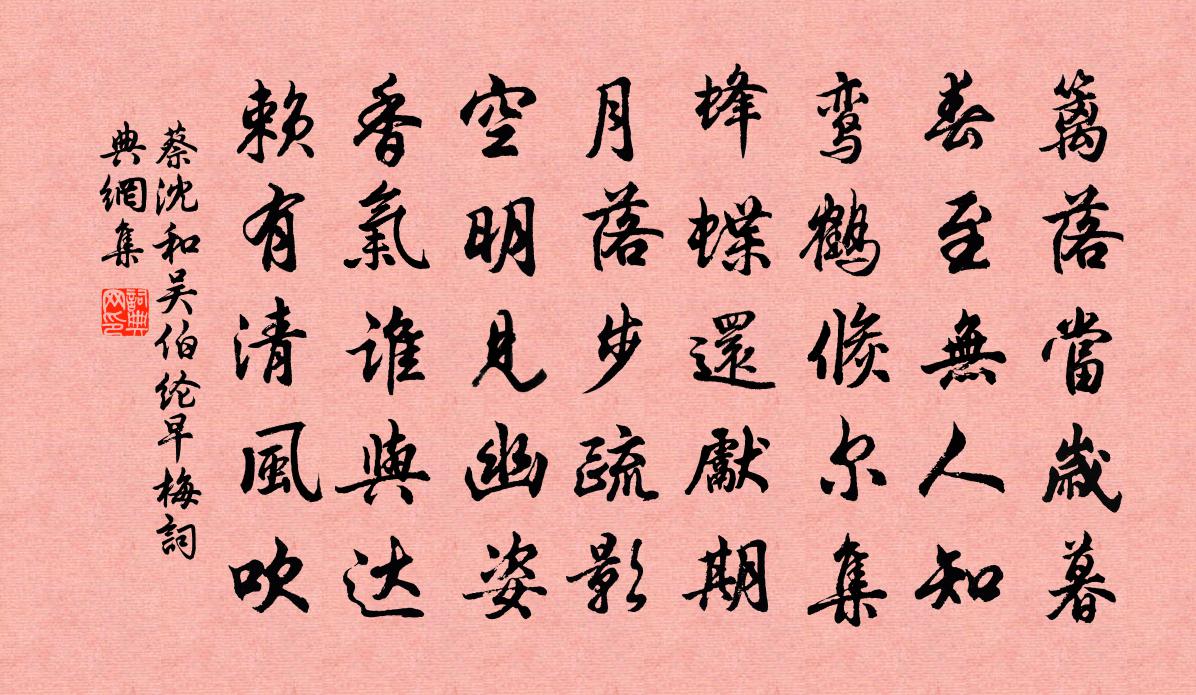 篱落當歲暮
春至無人知
鸾鶴倐尔集
蜂蝶還獻期
月落步疏影
空明見幽姿
香氣誰與达
赖有清風吹
蔡沈和吴伯纶早梅詞
典網集
詞典
网印